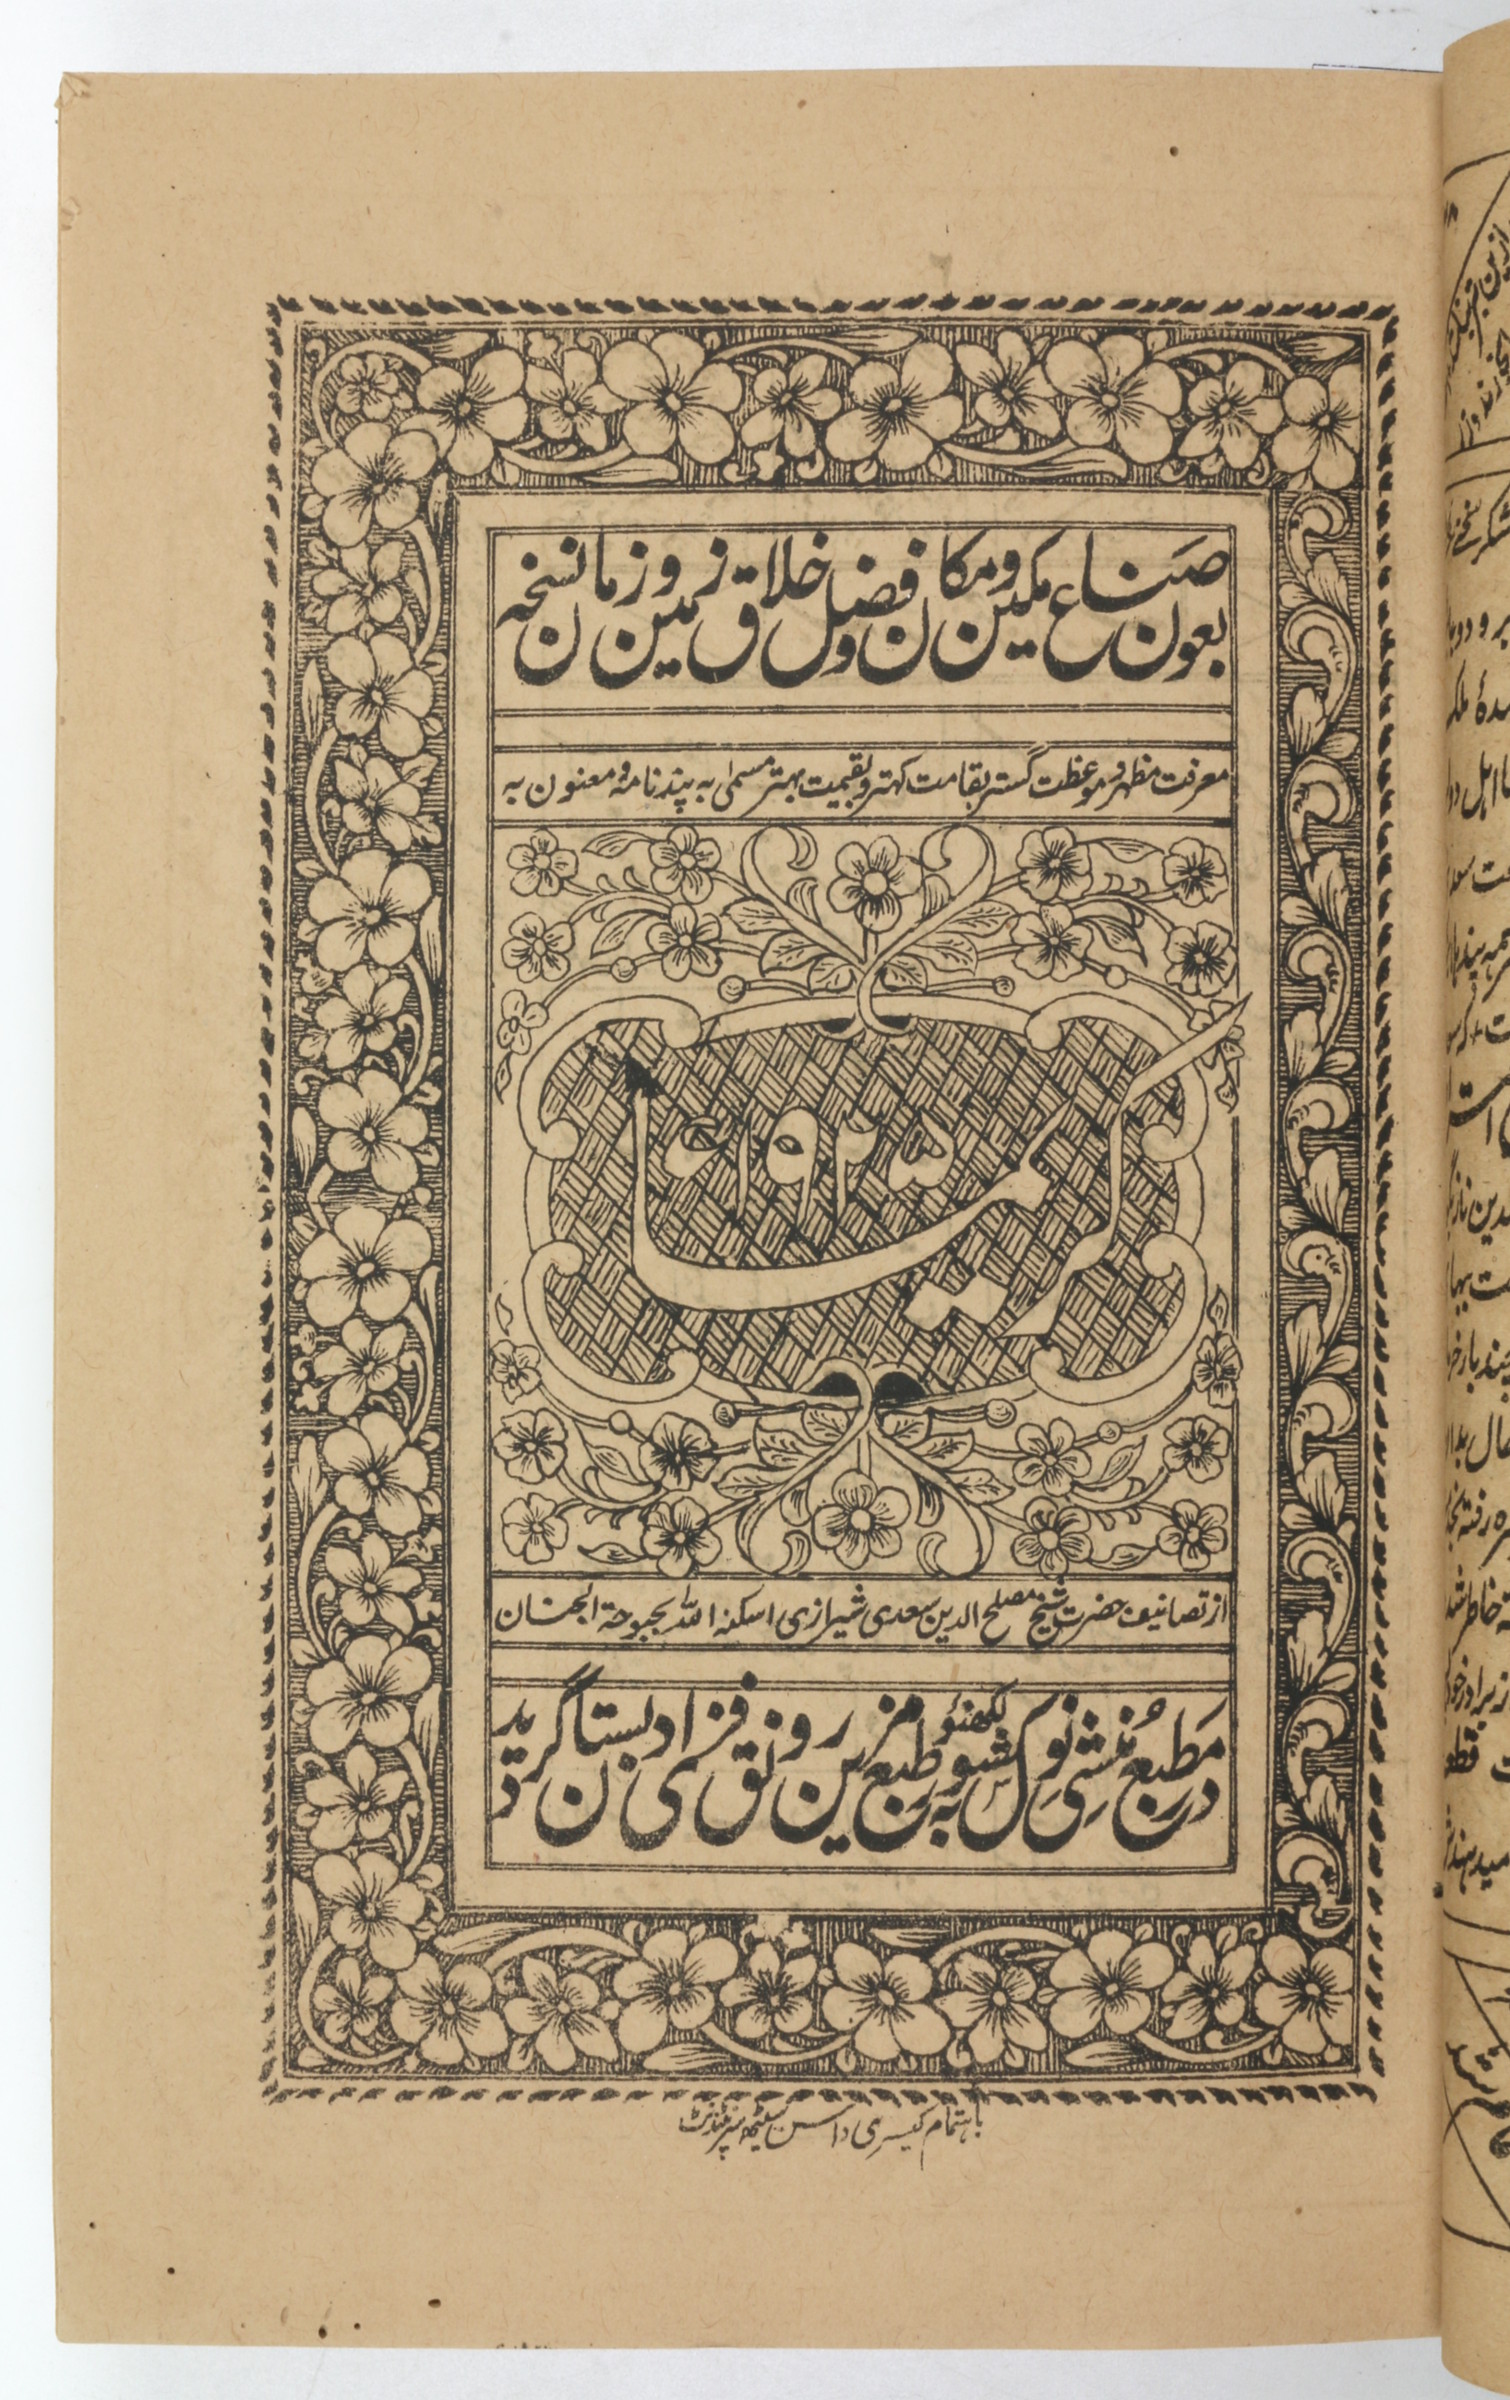 بعون صناع مکین و مکان و فضل خلاق زمین و زمان نسخه
معرفت مظهر و موعظت گستر بقامت کهتر و بقیمت بهتر مسمی به پندنامه و معنون به
کریما
۱۹۲۵ء
از تصانیف حضرت شیخ مصلح الدین سعدی شیرازی اسکنه الله بحبوحة الجنان
در مطبع منشی نولکشور لکهنؤ به طبع مزین رونق فزای دبستان گردید
باهتمام کیسری داس سیٹھ سپرنٹنڈنٹ